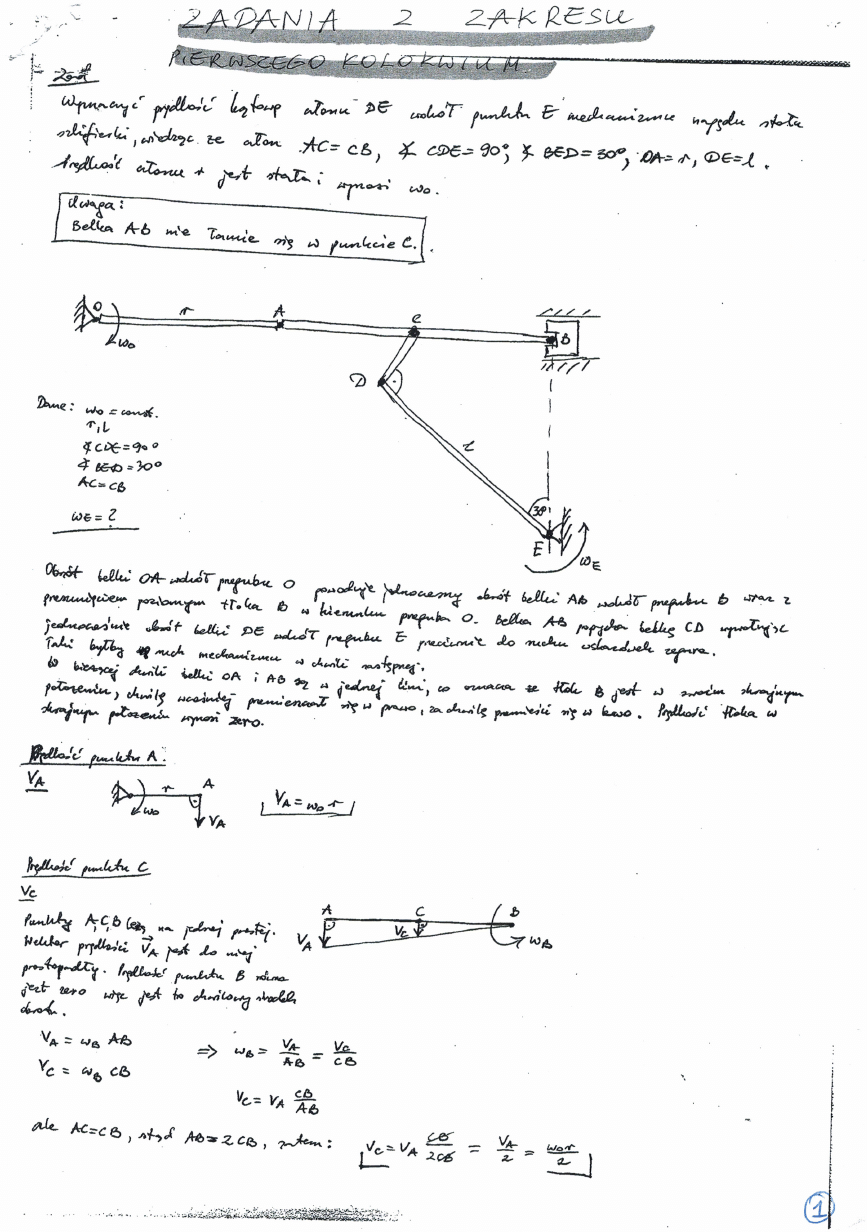 ZADANIA Z ZAKRESU
PIERWSZEGO KOLOKWIUM
Zad
Wyznaczyć prędkość kątową członu DE wokół punktu E mechanizmu napędu stołu
szlifierki, wiedząc, że człon AC=CB, ∢ CDE=90°, ∢ BED=30°, OA=r, DE=l.
Prędkość członu r jest stała i wynosi ω₀.
Uwaga:
Belka AB nie łamie się w punkcie C.
O r A C B
ω₀
D
l
30°
E
ω_E
Dane: ω₀=const.
r, l
∢CDE=90°
∢BED=30°
AC=CB
ω_E=?
Obrót belki OA wokół przegubu O powoduje jednoczesny obrót belki AB wokół przegubu B wraz z
przesunięciem poziomym tłoka B w kierunku przegubu O. Belka AB popycha belkę CD wywołując
jednocześnie obrót belki DE wokół przegubu E przeciwnie do ruchu wskazówek zegara.
Taki byłby ruch mechanizmu w chwili następnej.
W bieżącej chwili belki OA i AB są w jednej linii, co oznacza że tłok B jest w swoim skrajnym
położeniu, chwilę wcześniej przemieszczał się w prawo, za chwilę przemieści się w lewo. Prędkość tłoka w
skrajnym położeniu wynosi zero.
Prędkość punktu A.
V_A
r A
ω₀ V_A
V_A = ω₀ r
Prędkość punktu C
V_C
Punkty A,C,B leżą na jednej prostej.
Wektor prędkości V_A jest do niej
prostopadły. Prędkość punktu B równa
jest zero więc jest to chwilowy środek
obrotu.
A C B
V_A V_C ω_B
V_A = ω_B AB
V_C = ω_B CB
⇒ ω_B = V_A/AB = V_C/CB
V_C = V_A CB/AB
ale AC=CB, stąd AB=2CB, zatem: V_C = V_A CB/2CB = V_A/2 = ω₀r/2
1